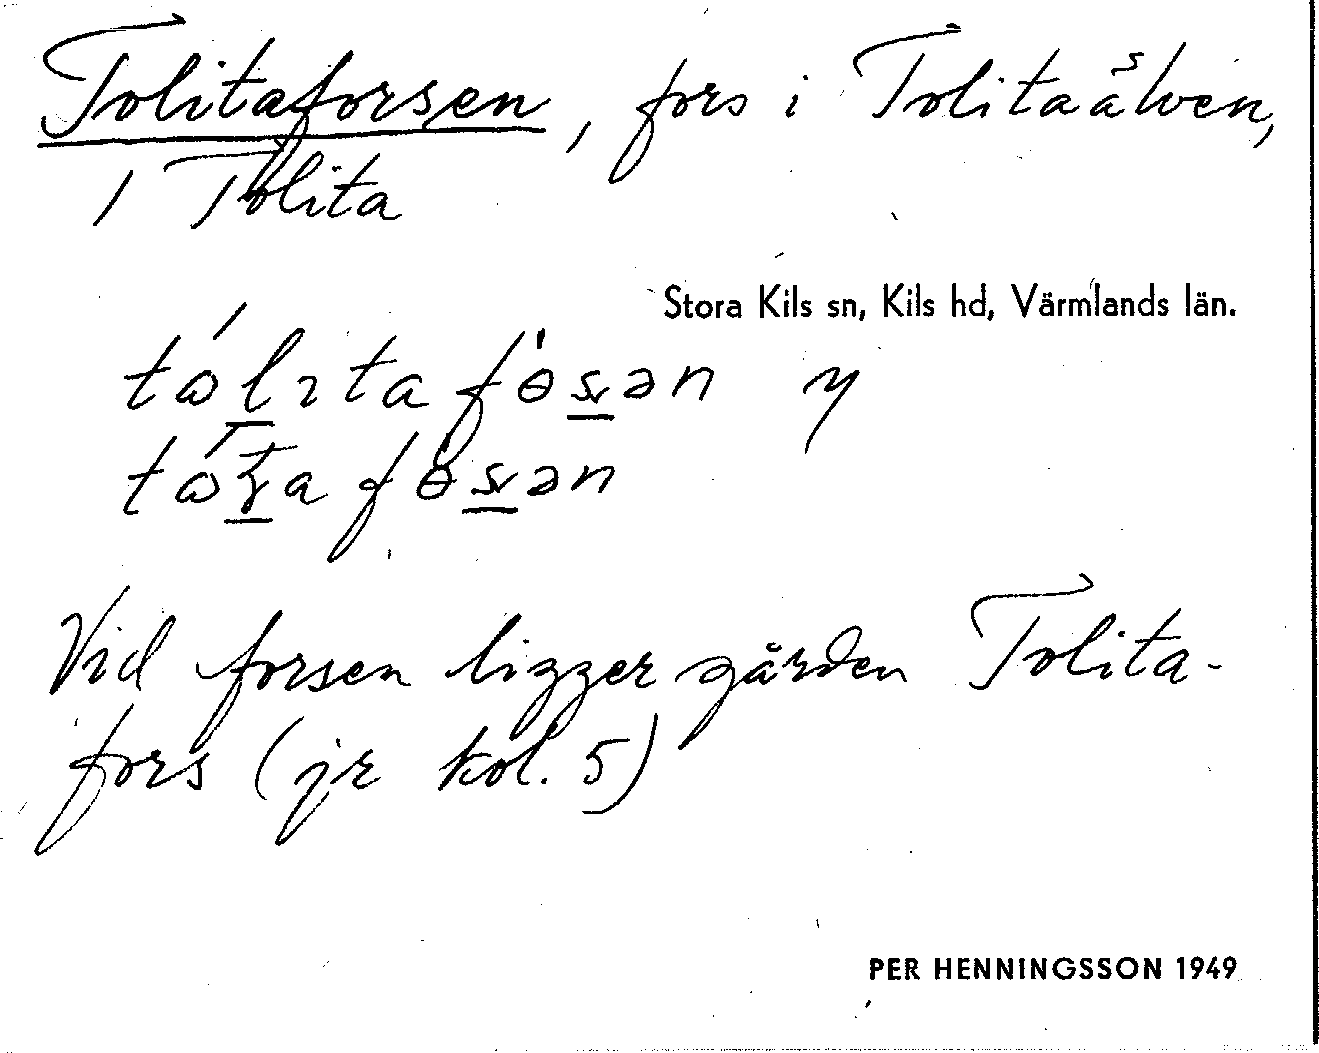 Tolitaforsen, fors i Tolitaälven,
i Tolita
Stora Kils sn, Kils hd, Värmlands län.
Vid forsen ligger gården Tolita-
fors (jr kol. 5)
PER HENNINGSSON 1949